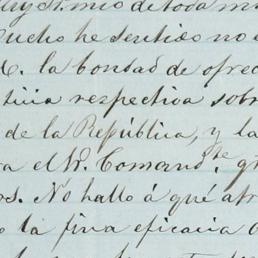 Muy Sr. mio de toda mi
Mucho he sentido no e
la bondad de ofrec
ticia respectiva sobr
de la República, y la
a el Sr. Comand.te g
rs. No hallo á qué atr
o la fina eficacia